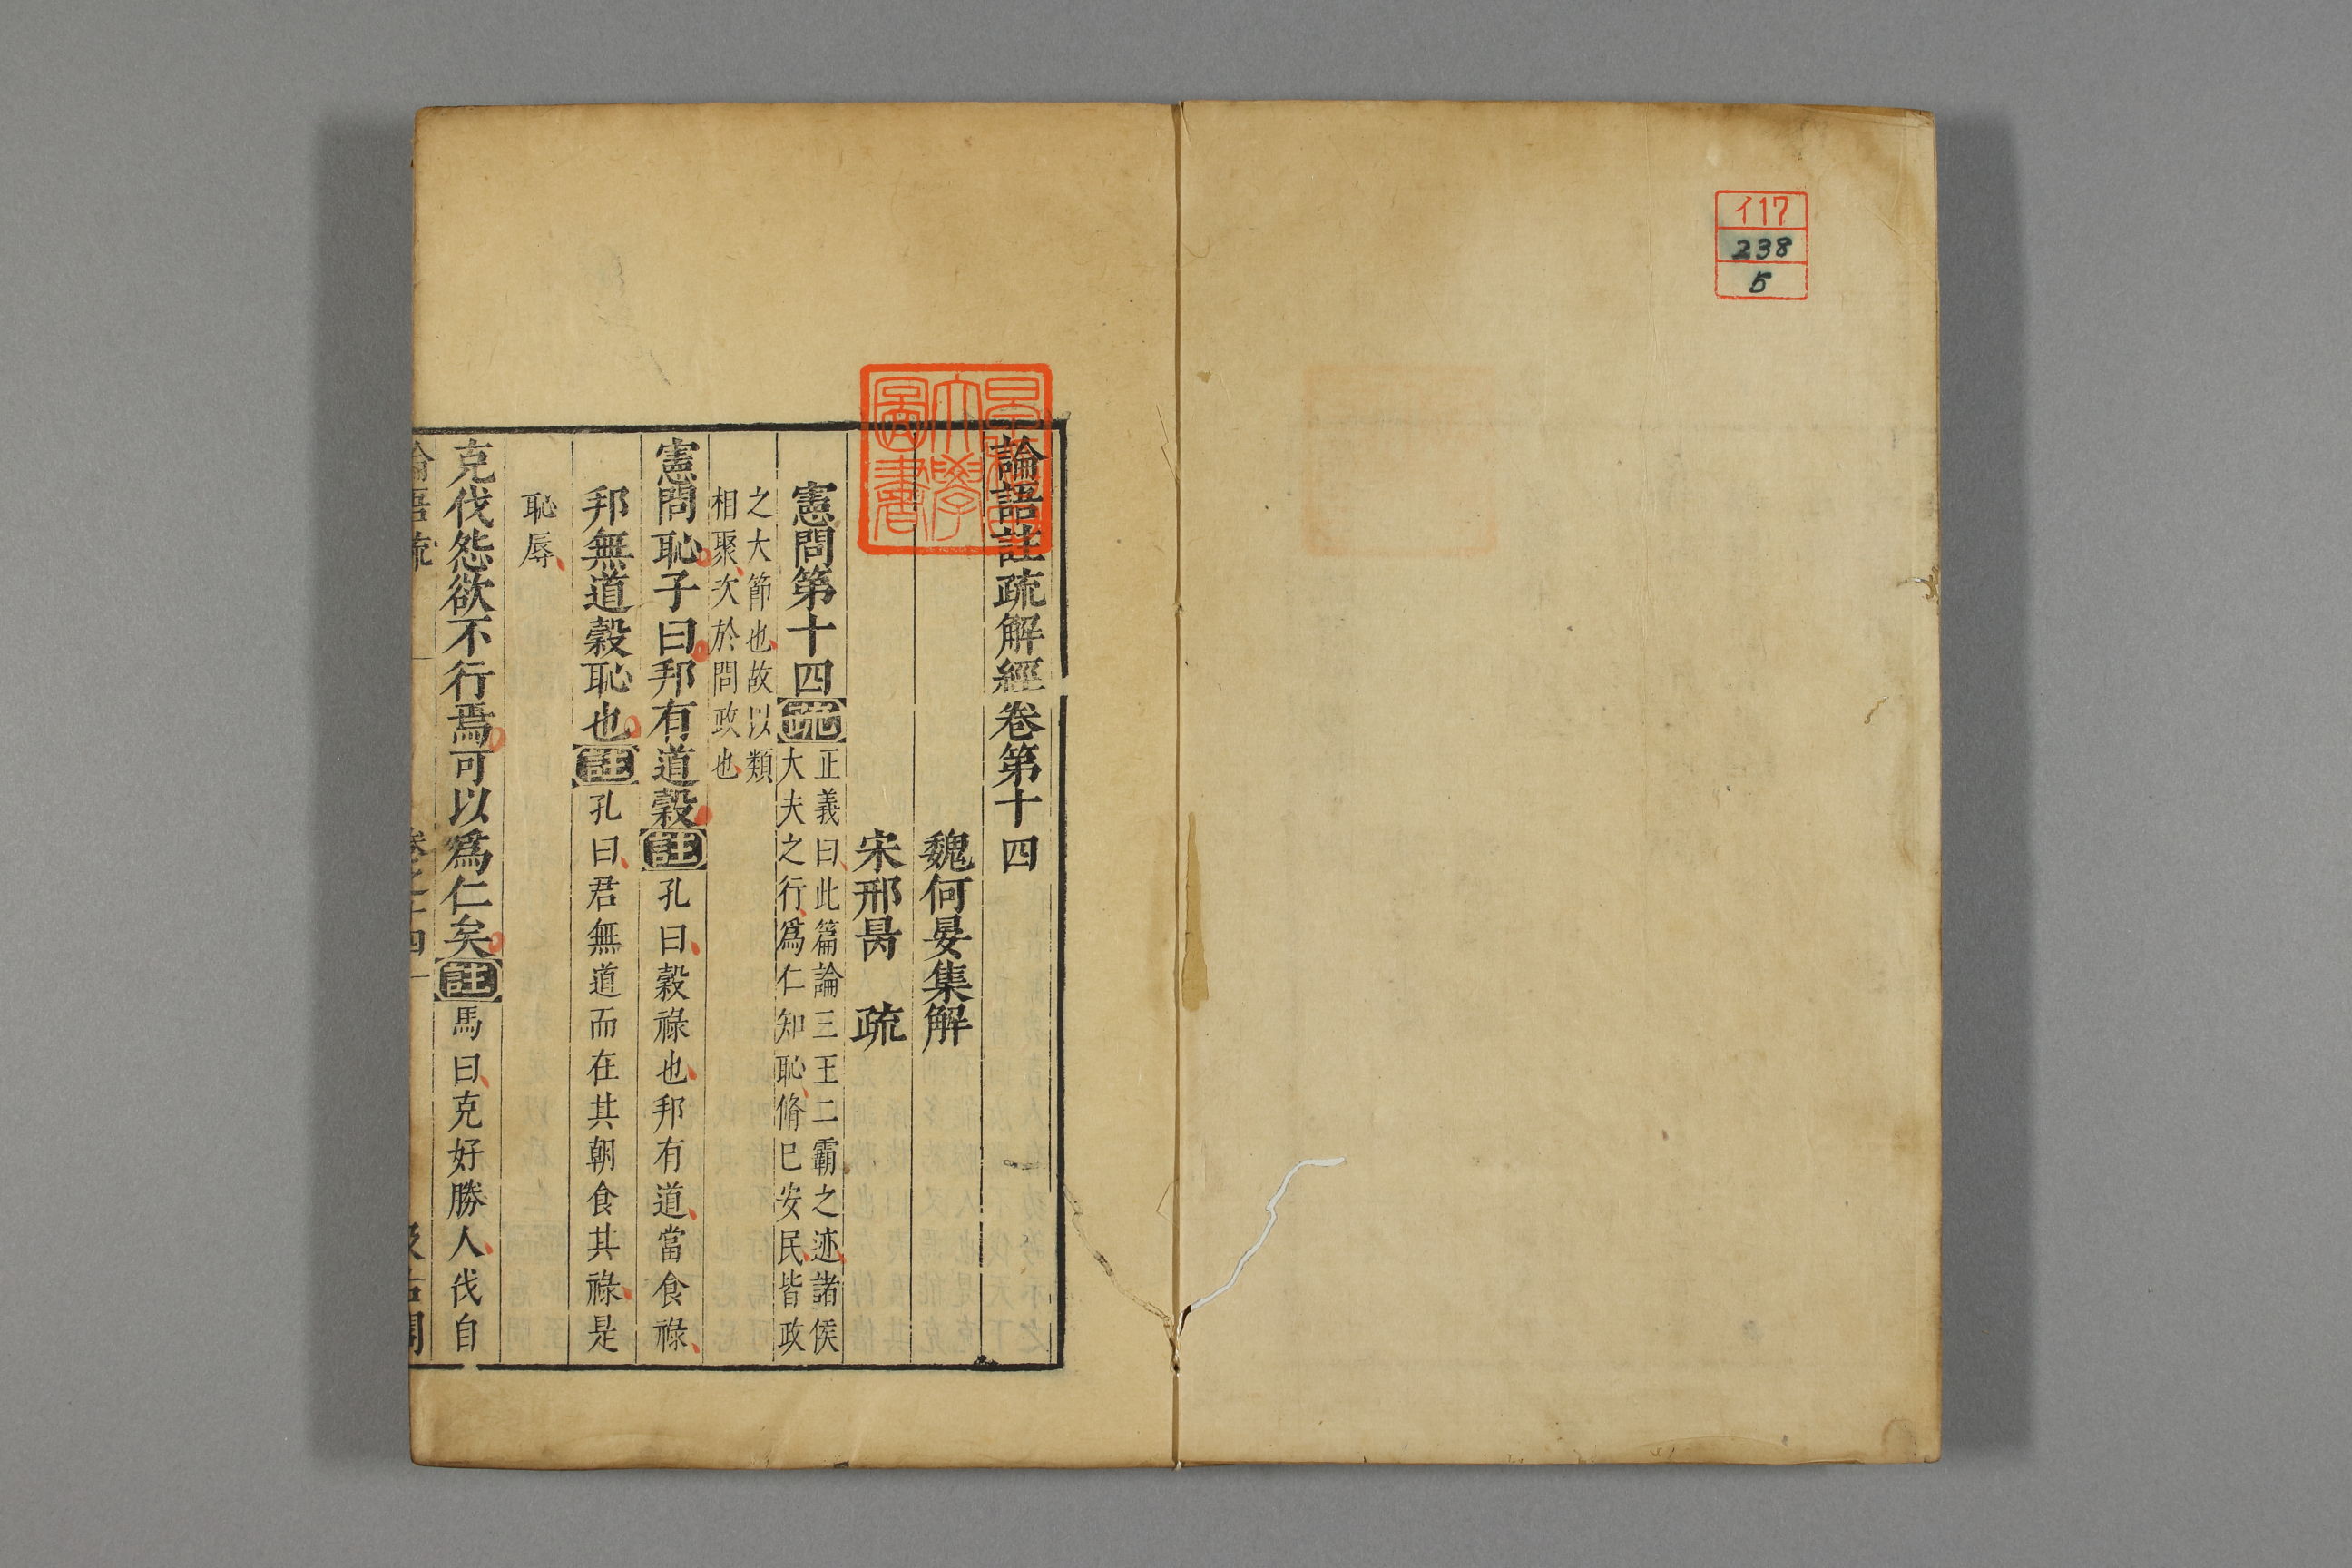 イ17
238
5
早稲田大學圖書
論語註疏解經卷第十四
魏何晏集解
宋邢昺 疏
憲問第十四 疏 正義曰此篇論三王二霸之迹諸侯
大夫之行爲仁知恥脩已安民皆政
之大節也故以類
相聚次於問政也
憲問恥子曰邦有道穀 註 孔曰穀祿也邦有道當食祿
邦無道穀恥也 註 孔曰君無道而在其朝食其祿是
恥辱
克伐怨欲不行焉可以爲仁矣 註 馬曰克好勝人伐自